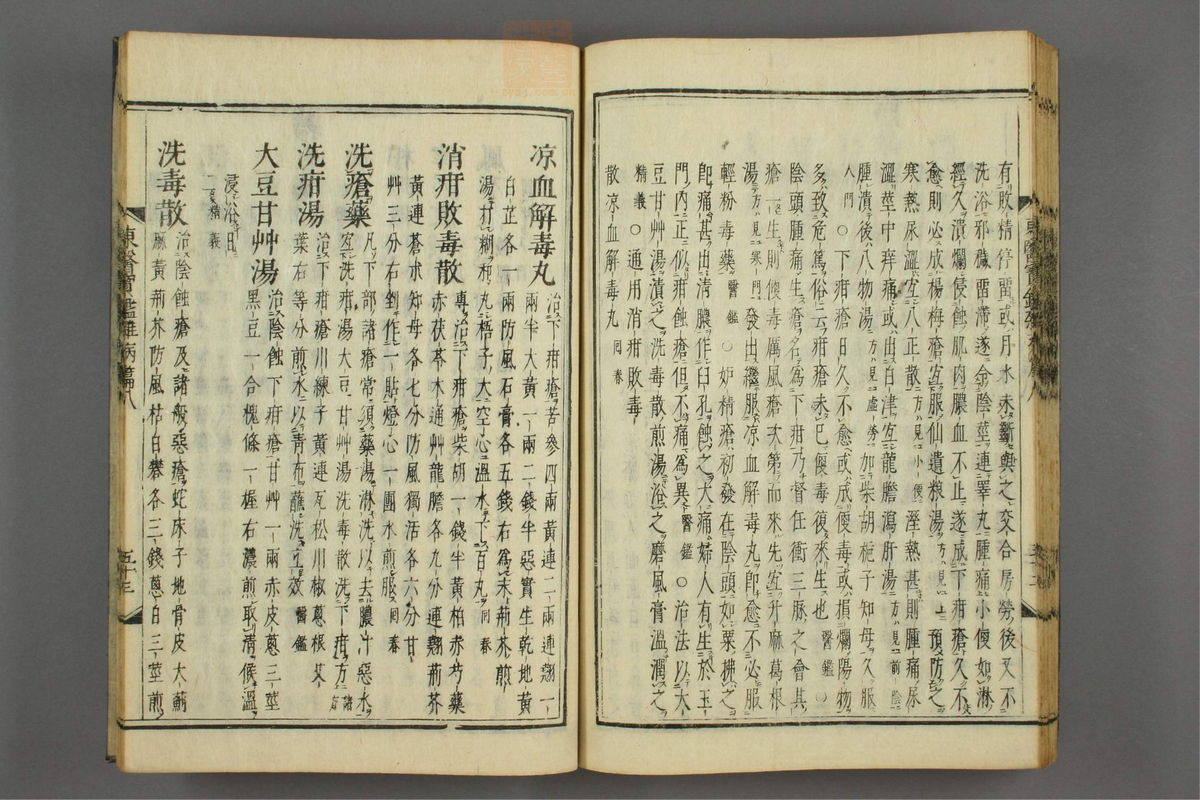 有敗精停畱或月水未斷與之交合房勞後又不
洗浴邪穢畱滯遂令陰莖連睪丸腫痛小便如淋
經久潰爛侵蝕肌肉膿血不止遂成下疳瘡久不
愈則必成楊梅瘡宜服仙遺粮湯方見上預防之
寒熱尿澁宜八正散方見小便溼熱甚則腫痛尿
澁莖中痒痛或出白津宜龍膽瀉肝湯方見前陰
腫潰後八物湯方見虛勞加柴胡梔子知母久服
入門○下疳瘡日久不愈或成便毒或損爛陽物
多致危篤俗云疳瘡未已便毒復來生也醫鑑○
陰頭腫痛生瘡名爲下疳乃督任衝三脉之會其
瘡一生則便毒厲風瘡次第而來先宜升麻葛根
湯方見寒門發出繼服凉血解毒丸卽愈不必服
輕粉毒藥醫鑑○妬精瘡初發在陰頭如粟拂之
卽痛甚出淸膿作臼孔蝕之大痛婦人有生於玉
門內正似疳蝕瘡但不痛爲異醫鑑○治法以大
豆甘艸湯漬之洗毒散煎湯浴之磨風膏溫潤之
精義○通用消疳敗毒
散凉血解毒丸回春
凉血解毒丸治下疳瘡苦參四兩黃連二兩連翹一
兩半大黃一兩二錢半惡實生乾地黃
白芷各一兩防風石膏各五錢右爲末荊芥煎
湯打糊和丸梧子大空心溫水下百丸回春
消疳敗毒散專治下疳瘡柴胡一錢半黃柏赤芍藥
赤茯苓木通艸龍膽各九分連翹荊芥
黃連蒼朮知母各七分防風獨活各六分甘
艸三分右剉作一貼燈心一團水煎服回春
洗瘡藥凡下部諸瘡常須藥湯淋洗以去膿汁惡水
宜洗瘡湯大豆甘艸湯洗毒散洗下疳方諸方
洗疳湯治下疳瘡川練子黃連瓦松川椒蔥根艾
葉右等分煎水以靑布蘸洗立效醫鑑
大豆甘艸湯治陰蝕下疳瘡甘艸一兩赤皮蔥三莖
黑豆一合槐條一握右濃煎取淸候溫
浸浴日
二三精義
洗毒散治陰蝕瘡及諸般惡瘡蛇床子地骨皮大薊
麻黃荊芥防風枯白礬各三錢蔥白三莖煎
東醫寶鑑雜病篇八
五十三